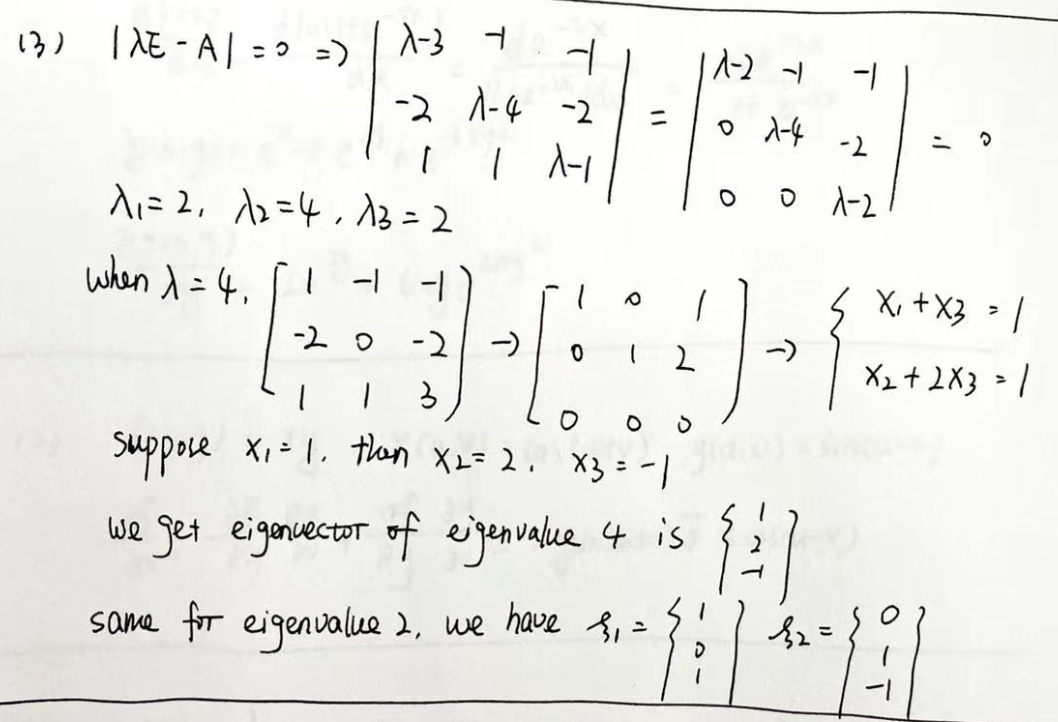 (3) |λE - A| = 0 => | λ-3 -1 -1 ; -2 λ-4 -2 ; 1 1 λ-1 | = | λ-2 -1 -1 ; 0 λ-4 -2 ; 0 0 λ-2 | = 0
λ1 = 2, λ2 = 4, λ3 = 2
when λ = 4, [ 1 -1 -1 ; -2 0 -2 ; 1 1 3 ] → [ 1 0 1 ; 0 1 2 ; 0 0 0 ] → { x1 + x3 = 1 ; x2 + 2x3 = 1
suppose x1 = 1, then x2 = 2, x3 = -1
we get eigenvector of eigenvalue 4 is { 1 ; 2 ; -1 }
same for eigenvalue 2, we have ξ1 = { 1 ; 0 ; 1 } ξ2 = { 0 ; 1 ; -1 }